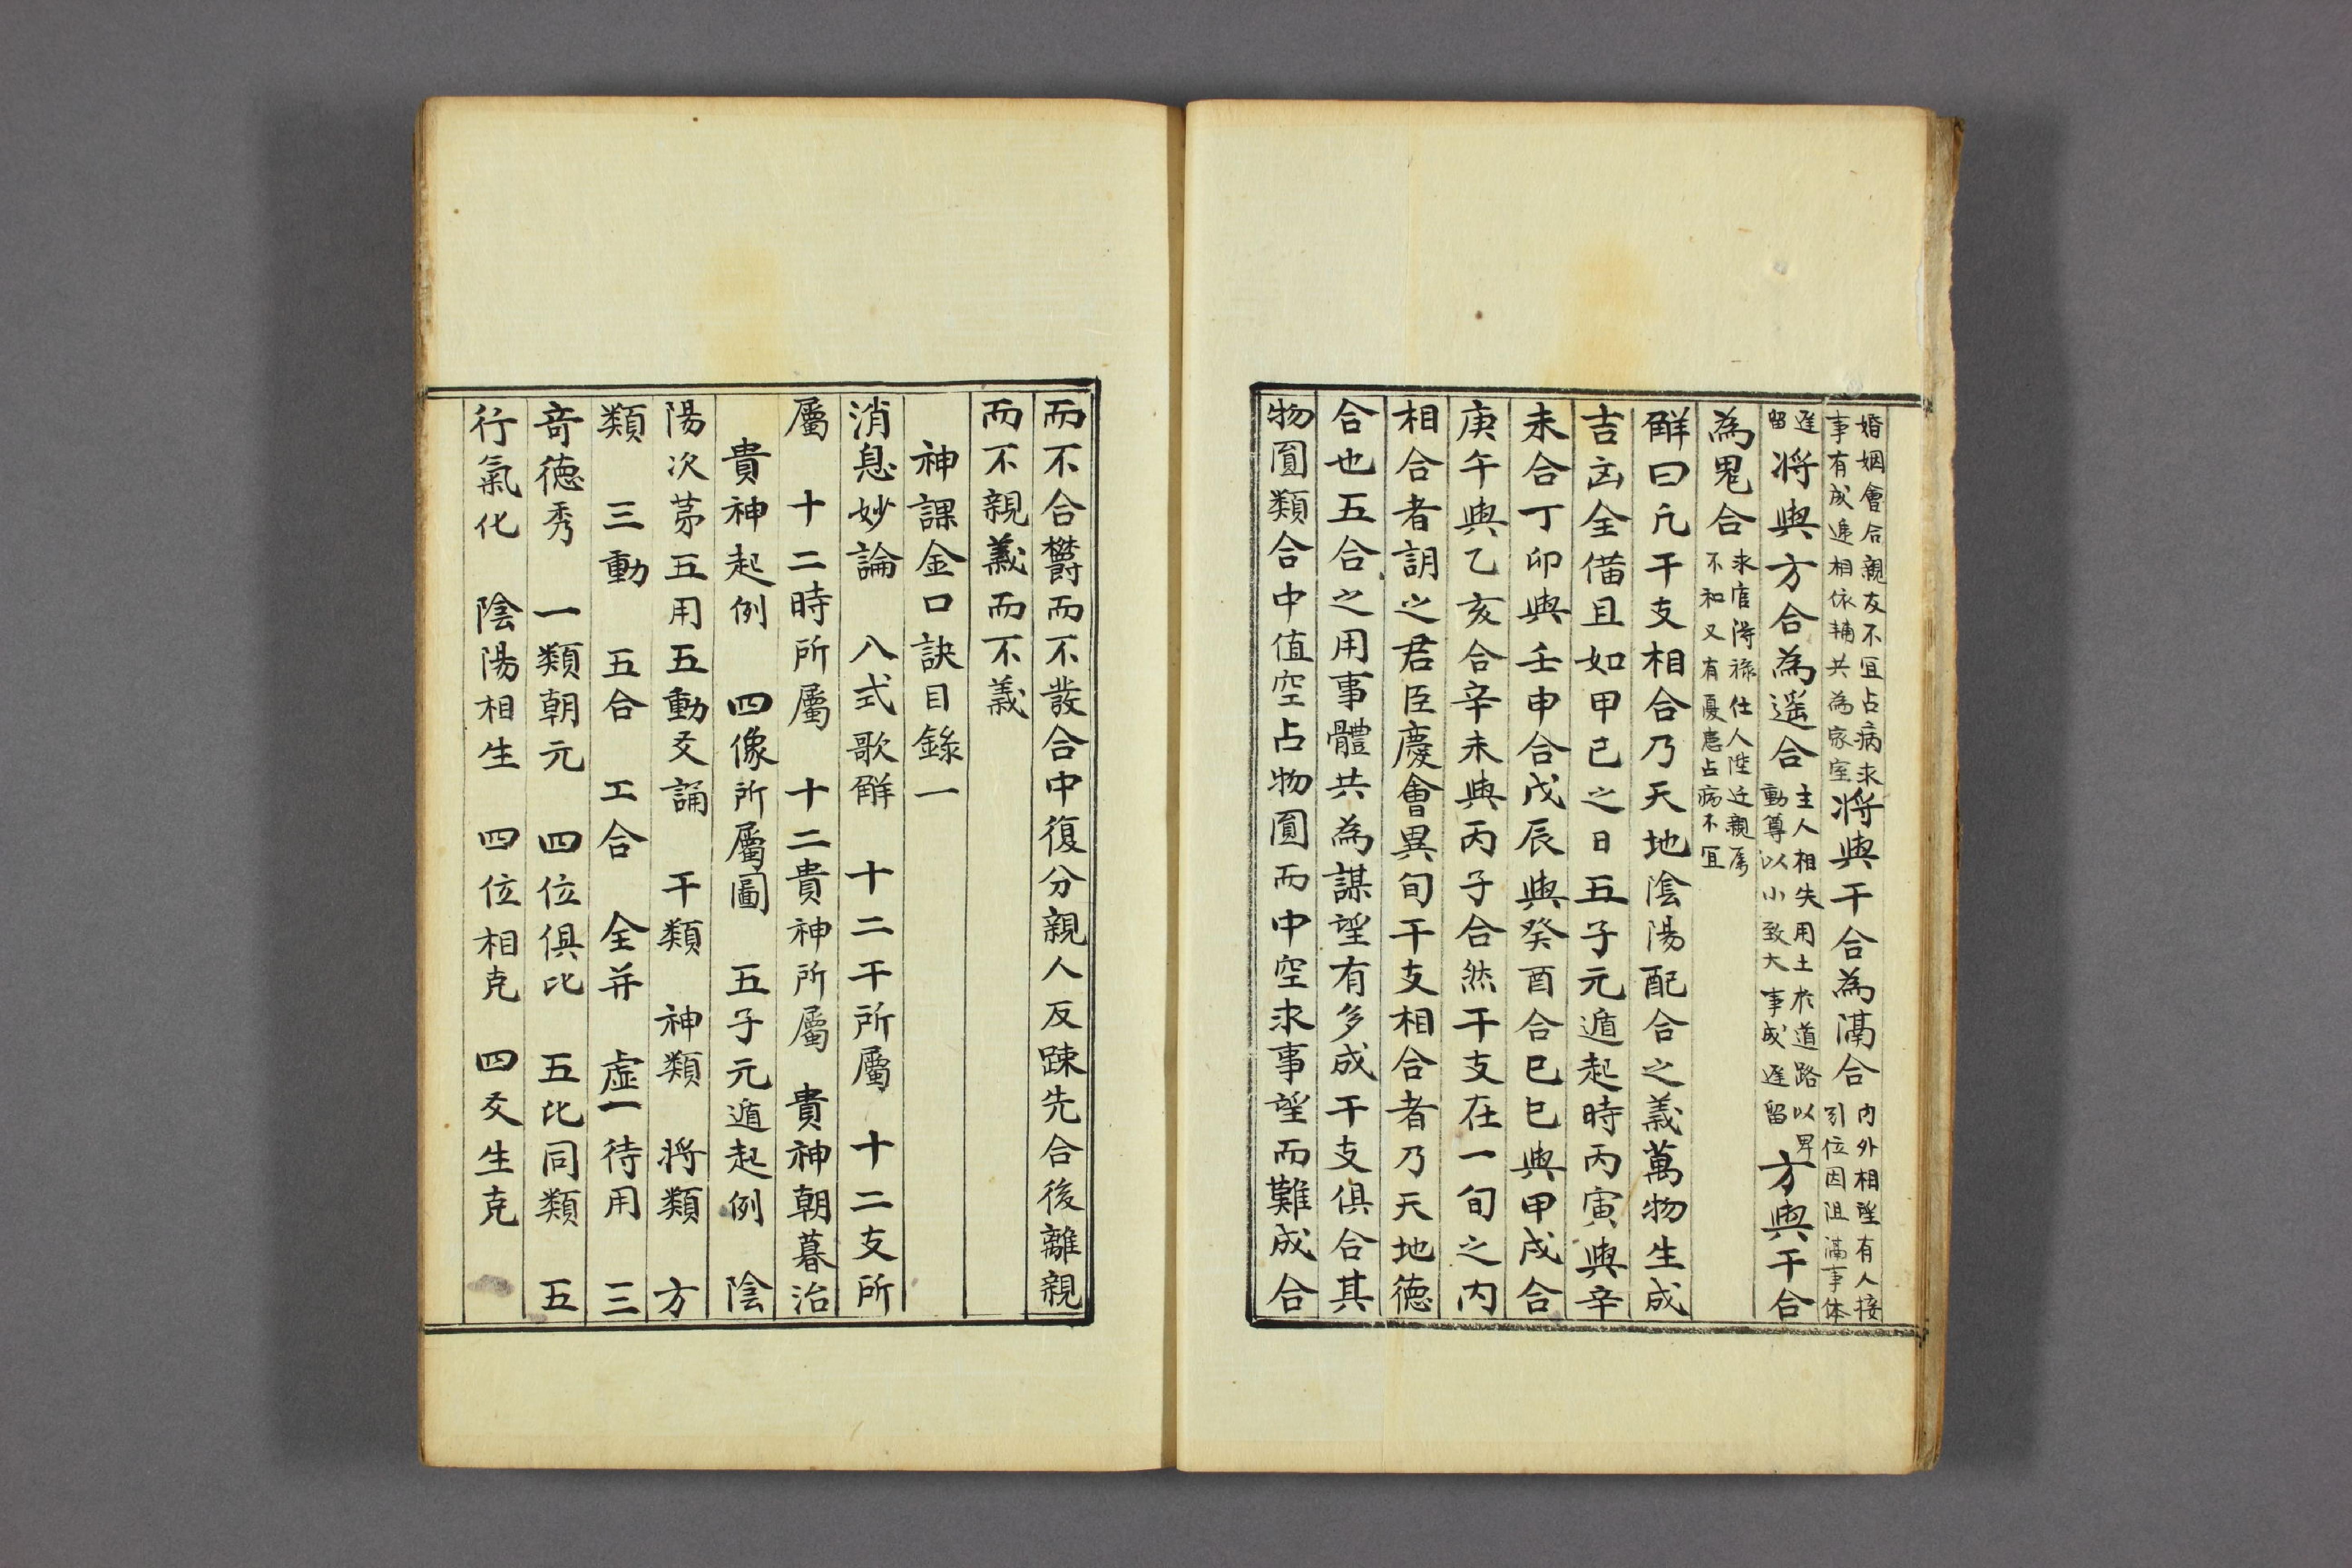 婚姻會合親友不宜占病求
事有成遞相依輔共為家室將與干合為滆合內外相望有人接
引位因沮滆事体
遲
留將與方合為遥合主人相失用土於道路以卑
動尊以小致大事成遲留方與干合
為鬼合求官淂祿仕人陞迁親属
不和又有憂患占病不宜
觧曰凢干支相合乃天地陰陽配合之義萬物生成
吉凶全備且如甲己之日五子元遁起時丙寅與辛
未合丁卯與壬申合戊辰與癸酉合巳巳與甲戌合
庚午與乙亥合辛未與丙子合然干支在一旬之内
相合者謂之君臣慶會異旬干支相合者乃天地德
合也五合之用事體共為謀望有多成干支俱合其
物圓類合中值空占物圓而中空求事望而難成合
而不合欝而不發合中復分親人反踈先合後離親
而不親義而不義
神課金口訣目錄一
消息妙論 八式歌觧 十二干所屬 十二支所
屬 十二時所屬 十二貴神所屬 貴神朝暮治
貴神起例 四像所屬圖 五子元遁起例 陰
陽次苐五用五動爻誦 干類 神類 將類 方
類 三動 五合 工合 全并 虛一待用 三
竒德秀 一類朝元 四位俱比 五比同類 五
行氣化 陰陽相生 四位相克 四爻生克